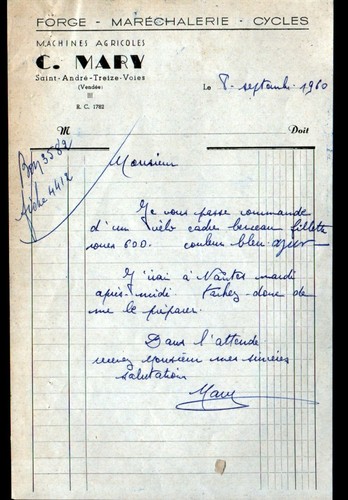 FORGE - MARÉCHALERIE - CYCLES
MACHINES AGRICOLES
C. MARY
Saint-André-Treize-Voies
(Vendée)
R. C. 1762
Le 8 septembre 1960
M
Doit
Bon 3582
fiche 4412
Monsieur
Je vous passe commande
d'un vélo cadre berceau fillette
roues 600. couleur bleu azur
J'irai à Nantes mardi
après-midi tachez donc de
me le préparer.
Dans l'attende
recevez Monsieur mes sincères
salutation
Mary